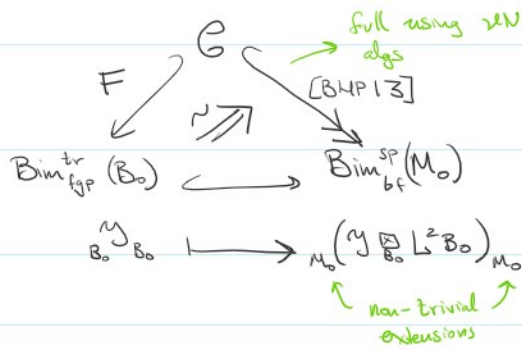 C
full using vN
algs
F
[BHP13]
~
Bim^{tr}_{fgp}(B_0) Bim^{sp}_{bf}(M_0)
_{B_0}Y_{B_0} _{M_0}(Y ⊠_{B_0} L^2 B_0)_{M_0}
non-trivial
extensions